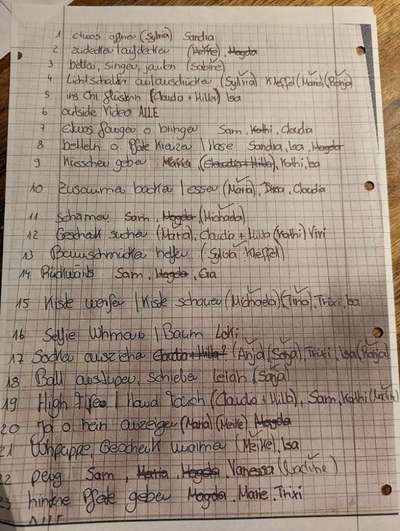 1 etwas öffnen (Sylvia) Sandra
2 zudecken/aufdecken (Meike), Magda
3 bellen, singen, jaulen (Sabine)
4 Lichtschalter an/ausdrücken (Sylvia) Kleffel (Maria)
5 ins Ohr flüstern (Claudia + Hilb) Isa
6 outside Video ALLE
7 etwas fangen o bringen Sam, Kathi, Claudia
8 betteln o Pfote Kreuzen / Hose Sandra, Isa, Magda
9 Küsschen geben Maria, (Claudia + Hilb), Kathi, Isa
10 zusammen backen / essen (Maria), Claudia
11 schämen Sam, Magda, (Michaela)
12 Geschenk suchen (Maria), Claudia + (Kathi) Vivi
13 Baumschmücken helfen (Sylvia Kleffel)
14 Rückwärts Sam, Magda,
15 Kiste werfen / Kiste schauen (Michaela) (Tina), Trixi, Isa
16 Selfie / Baum Loki
17 Socken ausziehen Claudia + Hilb? (Anja) (Sonja), Trixi, Isa
18 Ball anstupsen, schieben Leiah (Sonja)
19 High Five / hand Touch (Claudia + Hilb), Sam, Kathi
20 Ja o nein anzeigen (Maria) (Meike) Magda
21 Geschenk (Meike), Isa
22 Sam, Maria, Magda, Vanessa (Nadine)
hintere Pfote geben Magda, Marie, Trixi
ALLE